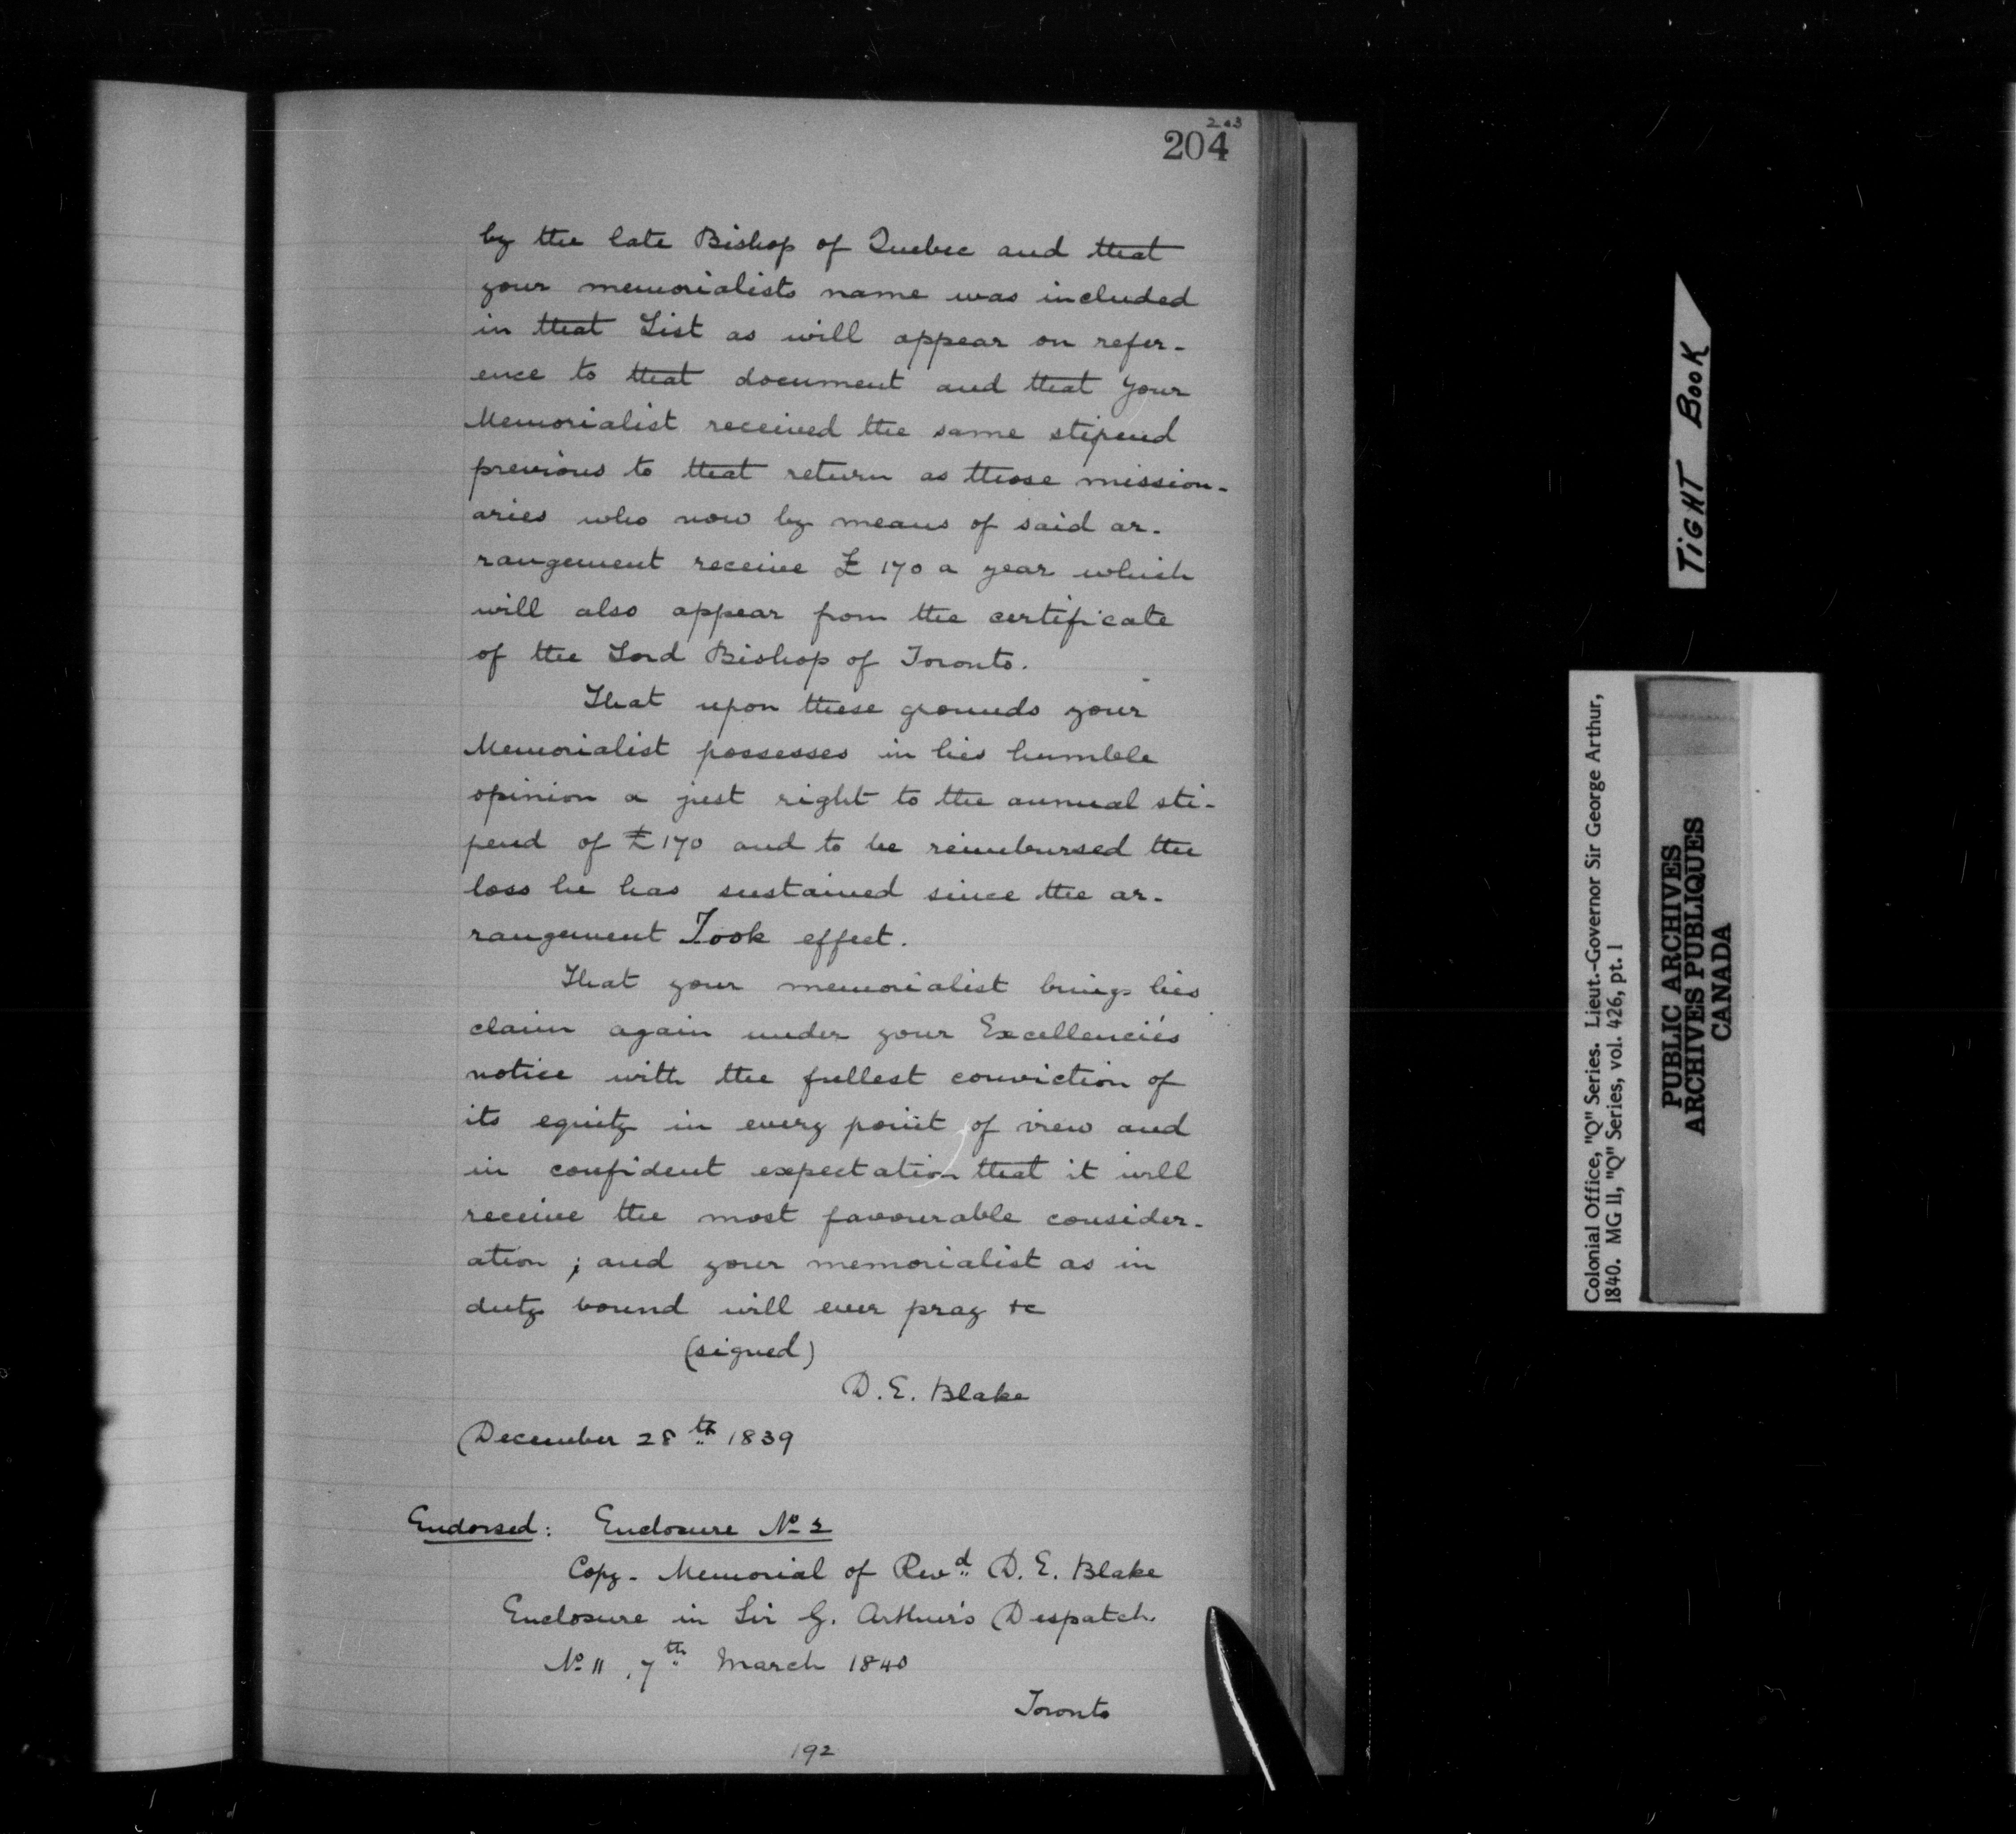 203
204
by the late Bishop of Quebec and that
your memorialists name was included
in that List as will appear on refer-
ence to that document and that your
Memorialist received the same stipend
previous to that return as those mission-
aries who now by means of said ar-
rangement receive £170 a year which
will also appear from the certificate
of the Lord Bishop of Toronto.
That upon these grounds your
Memorialist possesses in his humble
opinion a just right to the annual sti-
pend of £170 and to be reimbursed the
loss he has sustained since the ar-
rangement Took effect.
That your memorialist brings his
claim again under your Excellencies
notice with the fullest conviction of
its equity in every point of view and
in confident expectation that it will
receive the most favourable consider-
ation; and your memorialist as in
duty bound will ever pray &c
(signed)
D. E. Blake
December 28th 1839
Endorsed: Enclosure No 2
Copy - Memorial of Revd D. E. Blake
Enclosure in Sir G. Arthur's Despatch
No 11, 7th March 1840
Toronto
192
TIGHT BOOK
Colonial Office, "Q" Series. Lieut.-Governor Sir George Arthur,
1840. MG 11, "Q" Series, vol. 426, pt. 1
PUBLIC ARCHIVES
ARCHIVES PUBLIQUES
CANADA